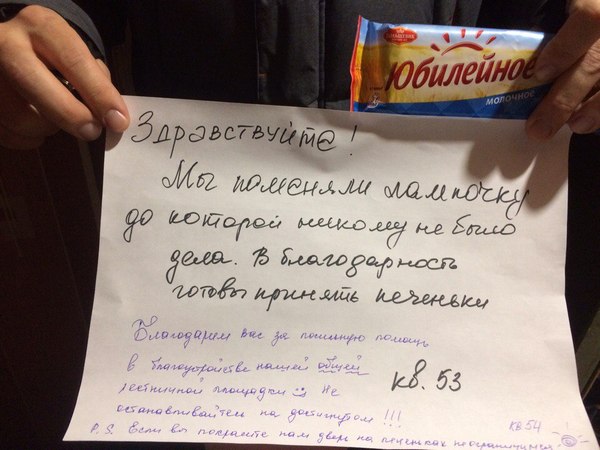 Юбилейное
МОЛОЧНОЕ
Здравствуйте!
Мы поменяли лампочку
до которой никому не было
дела. В благодарность
готовы принять печеньки
кв. 53
Благодарим вас за посильную помощь
в благоустройстве нашей общей
лестничной площадки Не
останавливайтесь на достигнутом!!!
кв 54
P.S. Если вы покрасите нам дверь на печеньках не ограничимся!